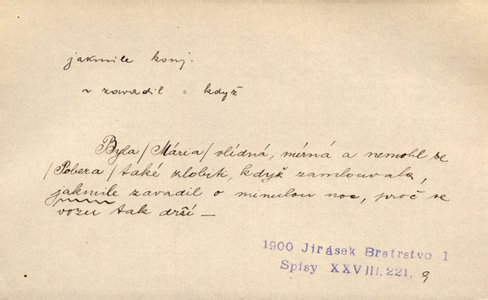 jakmile konj.
v zavadil = když
Byla /Mária/ vlídná, mírná a nemohl se
/Pobera/ také zlobit, když zamlouvala,
jakmile zavadil o minulou noc, proč se
vozu tak drží —
1900 Jirásek Bratrstvo I
Spisy XXVIII.221. 9